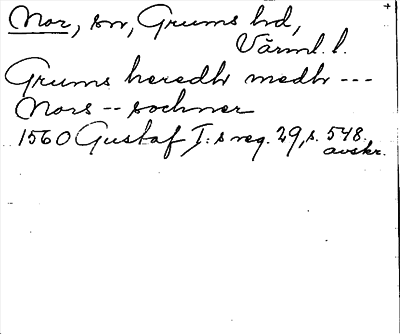 Nor, sn, Grums hd,
Värml. l.
Grums heredh medh ---
Nors -- sochner
1560 Gustaf I:s reg. 29, s. 548.
avskr.